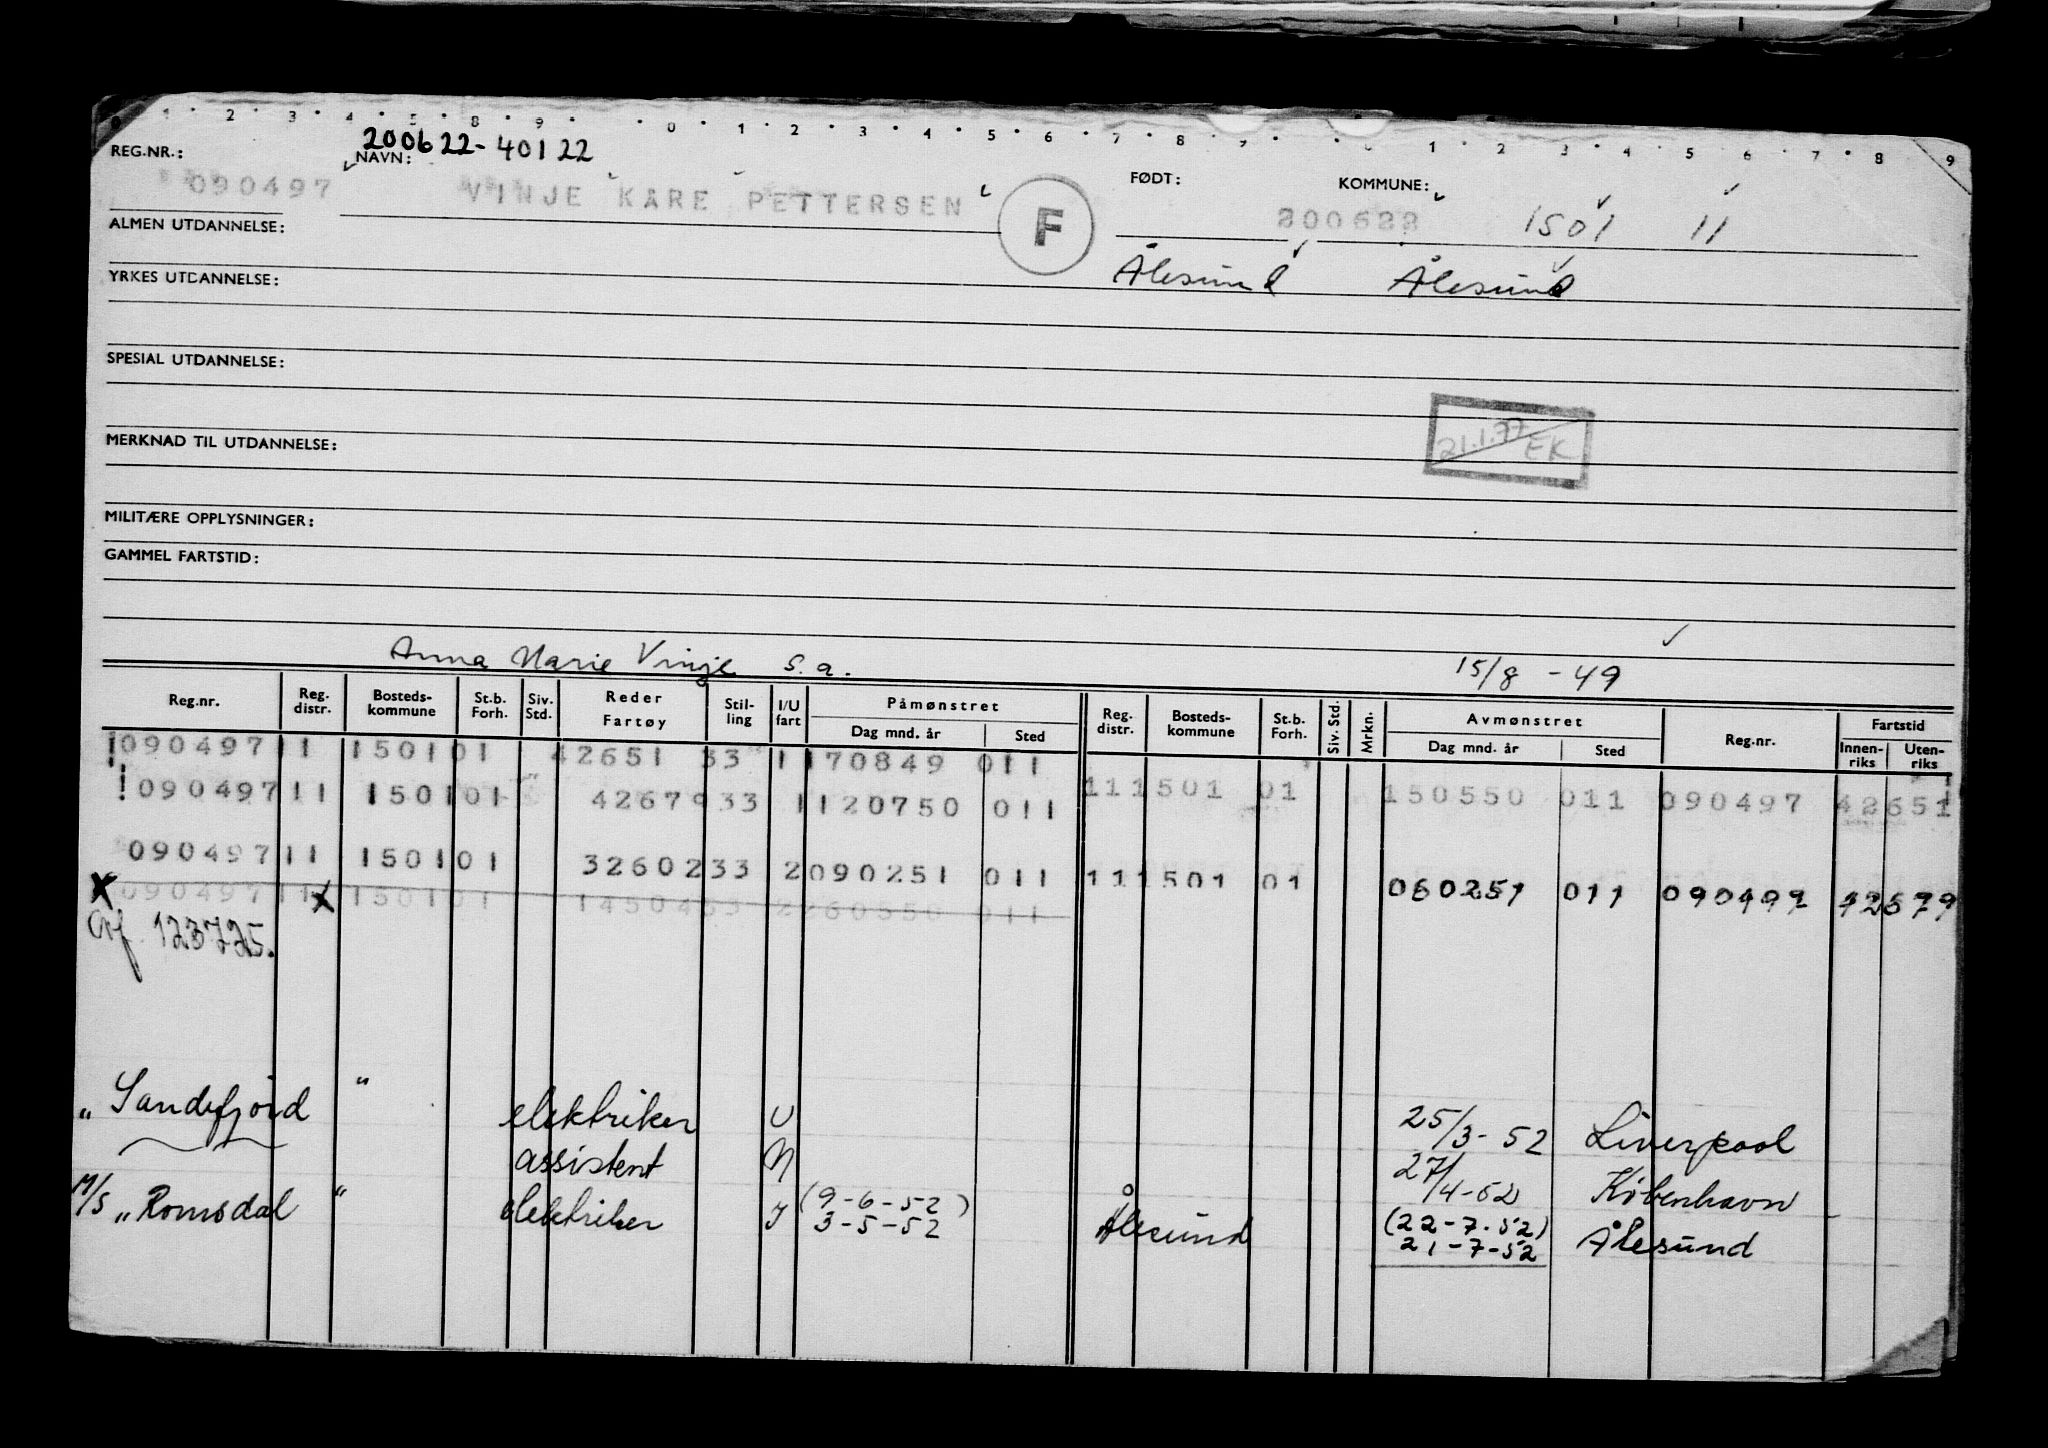 0 1 2 3 4 5 8 9 0 1 2 3 4 5 6 7 8 9 1 2 3 4 5 6 7 8 9
200622-40122
REG.NR.: NAVN: FØDT: KOMMUNE:
090497 VINJE KARE PETTERSEN F 200622 1501 11
ALMEN UTDANNELSE:
Ålesund Ålesund
YRKES UTDANNELSE:
SPESIAL UTDANNELSE:
21.1.77 EK
MERKNAD TIL UTDANNELSE:
MILITÆRE OPPLYSNINGER:
GAMMEL FARTSTID:
Anna Marie Vinje s.a. 15/8 - 49
Reg.nr. Reg. distr. Bosteds- kommune St.b. Forh. Siv. Std. Reder Fartøy Stil- ling I/U fart Påmønstret Dag mnd. år Sted Reg. distr. Bosteds- kommune St.b. Forh. Siv. Std. Mrkn. Avmønstret Dag mnd. år Sted Reg.nr. Fartstid Innen- riks Uten- riks
090497 11 1501 01 42651 33 1 170849 011
090497 11 1501 01 42679 33 1 120750 011 11 1501 01 150550 011 090497 42651
090497 11 1501 01 32602 33 2 090251 011 11 1501 01 060251 011 090497 42679
X 090497 11 X 1501 01 14504 33 2 260550 011
123725.
"Sandefjord" elektriker U 25/3-52 Liverpool
assistent N 27/4-52 København
M/S "Romsdal" elektriker I (9-6-52) 3-5-52 Ålesund (22-7-52) 21-7-52 Ålesund